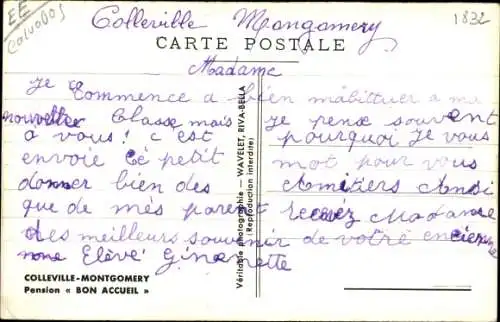 EE
Calvados
Colleville Mongomery
1832
CARTE POSTALE
Madame
Je Commence a bien mabittuer a ma
nouvelle Classe mais je pense souvent
a vous! c'est pourquoi Je vous
envoie Cé petit mot pour vous
donner bien des Amitiers Ansi
que de més parent recevéz Madame
des meilleurs souvenir de votre encienne
Elevé Ginenette
Véritable photographie — WAVELET, RIVA-BELLA
(Reproduction interdite)
COLLEVILLE-MONTGOMERY
Pension « BON ACCUEIL »